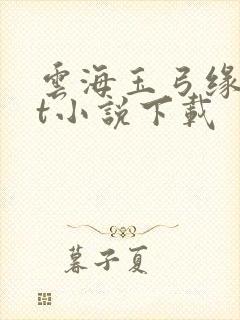 雲海玉弓緣
t小說下載
暮子夏